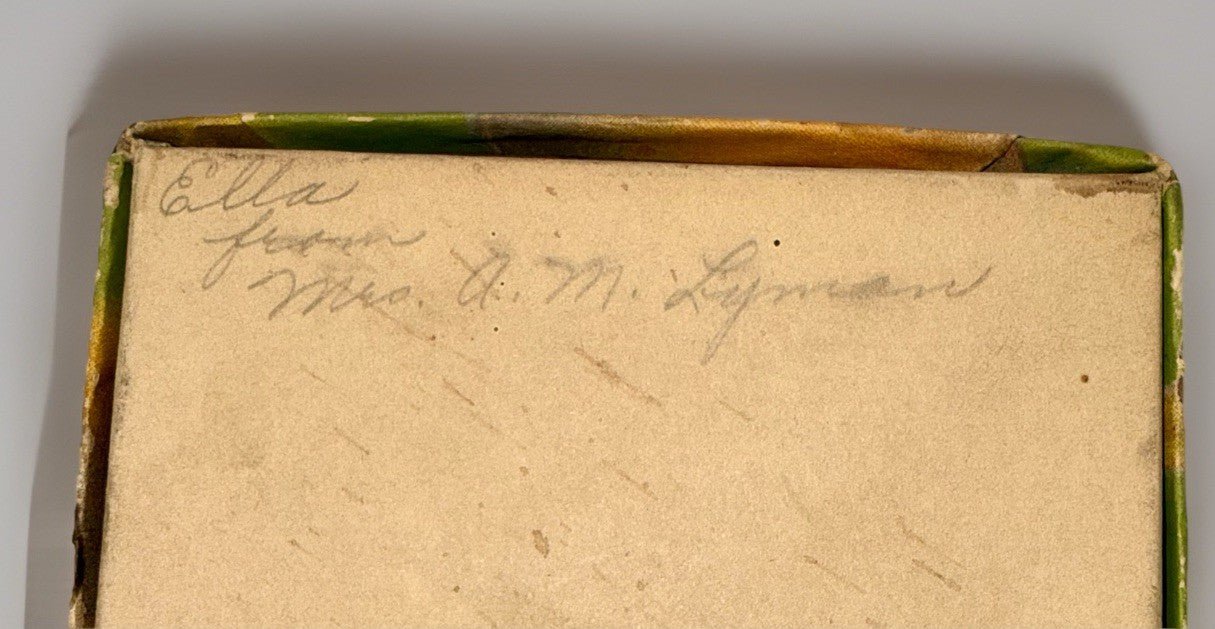 Ella
from
Mrs. A. M. Lyman